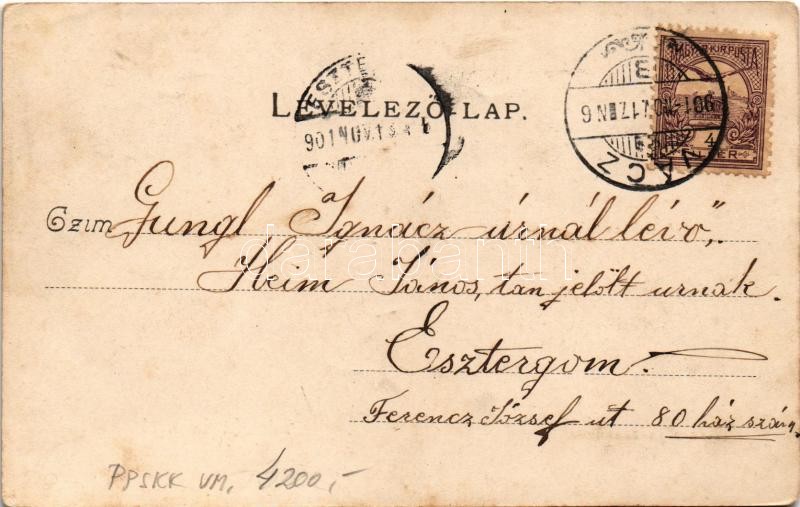 MAGYAR KIR. POSTA
4
VÁCZ
901 NOV. 17. N 6
ESZTE
901 NOV. 1
LEVELEZŐ-LAP.
Czim Gungl Ignácz úrnál lévő,
darabanth
Heim János, tan jelölt urnak.
Esztergom.
Ferencz József út 80 ház szám
PPSKK VM. 4200,-